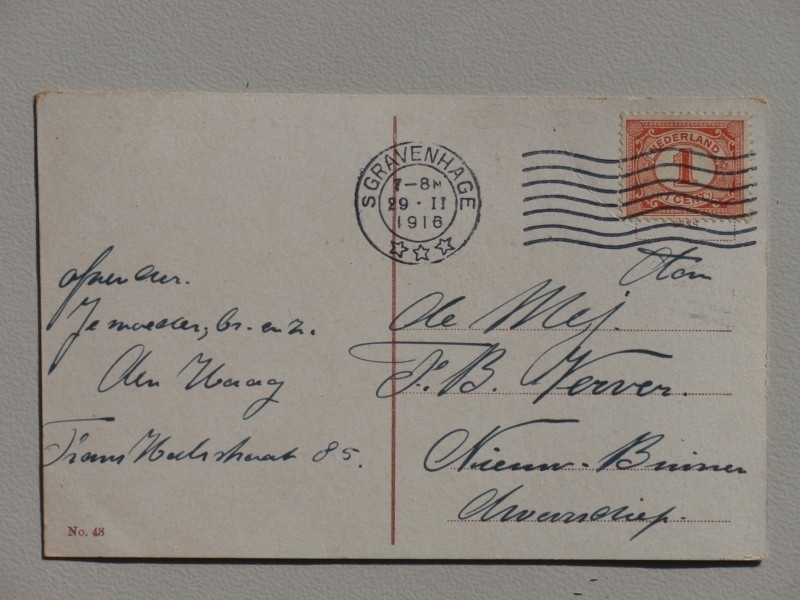 SGRAVENHAGE
7-8N
29 · II
1916
NEDERLAND
1
1 CENT
Afzender.
Je moeder, br. en z.
Den Haag
Frans Halsstraat 85.
Aan
de Mej.
B. Verver.
Nieuw-Buinen
No. 43